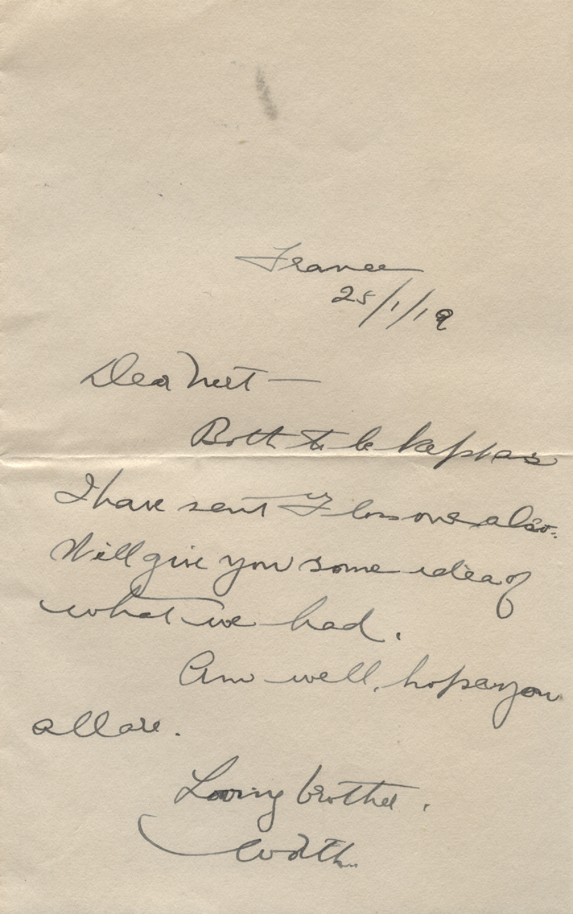 France
25/1/19
Dear Nert —
Both to be kept as
I have sent Floss one also.
Will give you some idea of
what we had.
Am well, hope you
all are.
Loving brother,
Worth.